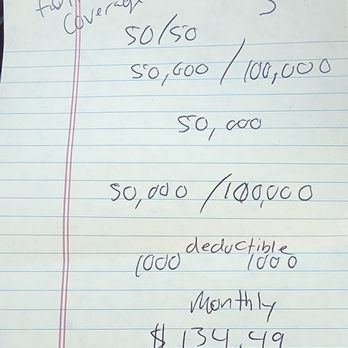 full
coverage
50/50
50,000 / 100,000
50,000
50,000 / 100,000
deductible
1000 1000
Monthly
$ 134.49